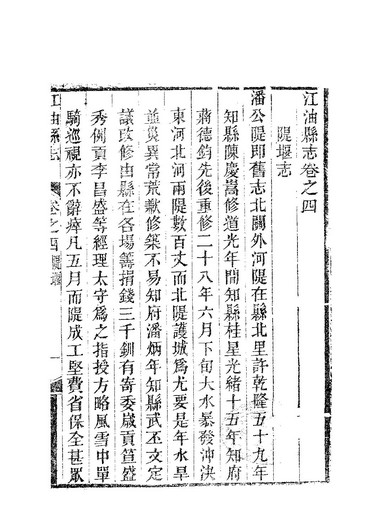 江油縣志卷之四
隄堰志
潘公隄即舊志北關外河隄在縣北里許乾隆五十九年
知縣陳慶嵩修道光年間知縣桂星光緒十五年知府
蔣德鈞先後重修二十八年六月下旬大水暴發沖決
東河北河兩隄數百丈而北隄護城爲尤要是年水旱
並災異常荒歉修築不易知府潘炳年知縣武丕文定
議改修由縣在各場籌捐錢三千釧有奇委歲貢笪盛
秀例貢李昌盛等經理太守爲之指授方略風雪中單
騎巡視亦不辭瘁凡五月而隄成工堅費省保全甚眾
江油縣志
卷之四隄堰
一